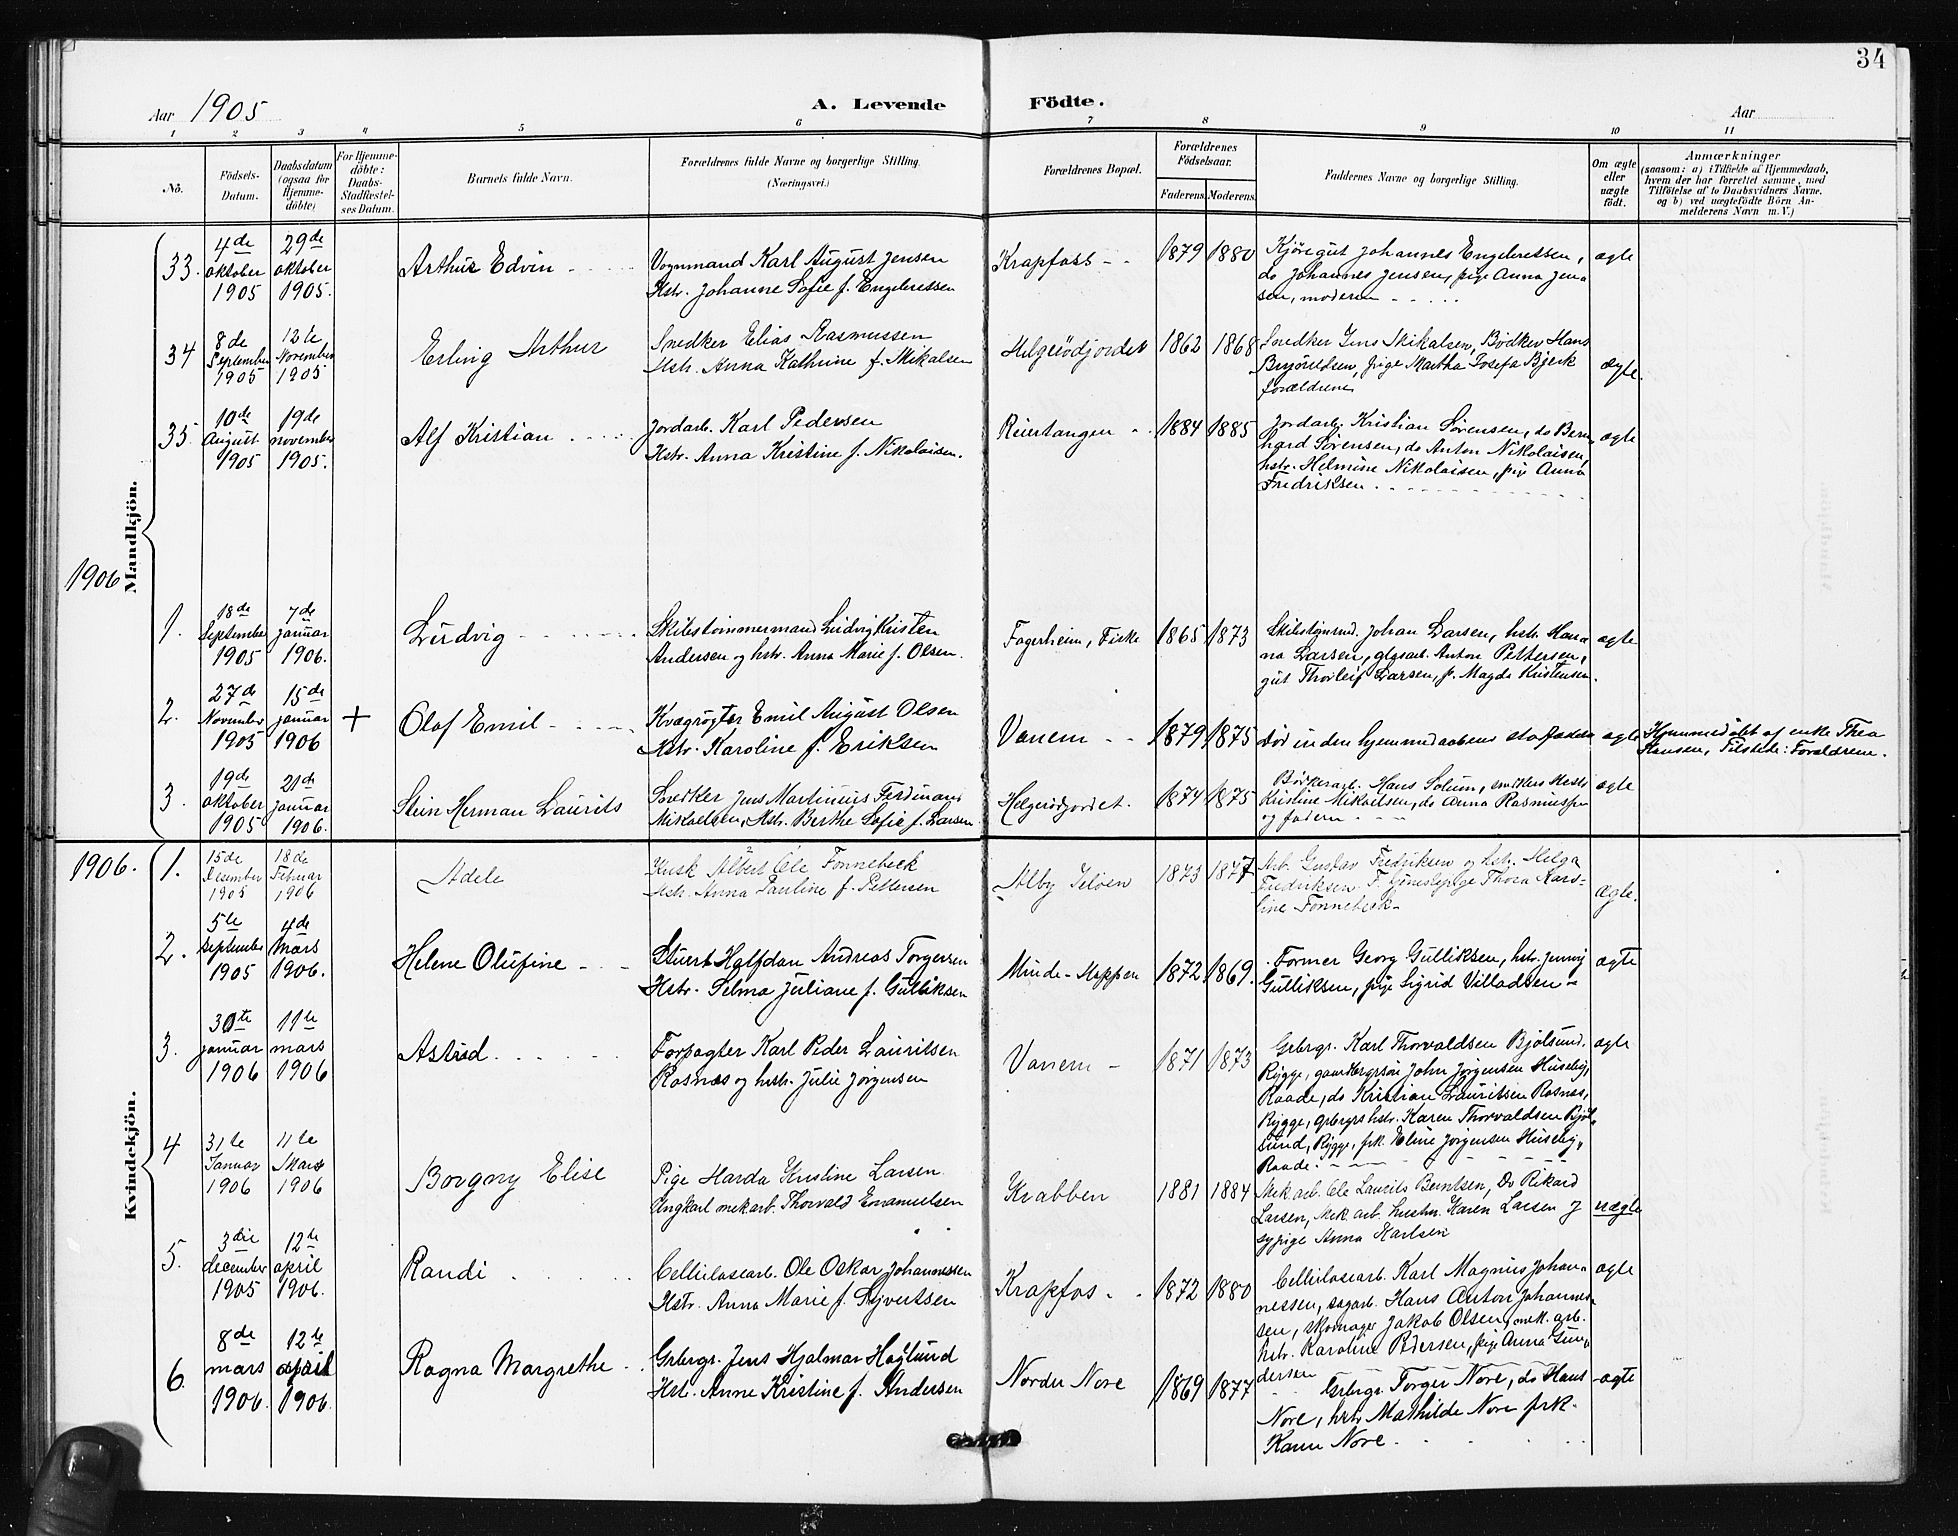 34
Aar 1905
A. Levende Födte.
Aar
1 2 3 4 5 6 7 8 9 10 11
No.
Födsels-Datum.
Daabsdatum (ogsaa for Hjemmedöbte)
For Hjemmedöbte: Daabs-Stadfæstelses Datum.
Barnets fulde Navn.
Forældrenes fulde Navne og borgerlige Stilling. (Næringsvei.)
Forældrenes Bopæl.
Forældrenes Födselsaar.
Faderens. Moderens.
Faddernes Navne og borgerlige Stilling.
Om ægte eller uægte födt.
Anmærkninger
(saasom: a) i Tilfælde af Hjemmedaab, hvem der har forrettet samme, med Tilföielse af to Daabsvidners Navne, og b) ved uægtefödte Börn Anmelderens Navn m. V.)
Mandkjön.
33. 4de oktober 1905 29de oktober 1905. Arthur Edvin
Vognmand Karl August Jensen
Hstr. Johanne Sofie f. Engebretsen
Krapfoss 1879 1880
Kjøregut Johannes Engebretsen,
do Johannes Jensen, pige Anna Jen-
sen, moderen
ægte
34 8de September 1905 12te November 1905 Erling Arthur
Snedker Elias Rasmussen
Hstr. Anna Kathrine f. Mikalsen
Helgerödjordet 1862 1868
Snedker Jens Mikalsen, Bödker Hans
pige Martha Josefa Bjerk
forældrene
ægte.
35. 10de August 1905 19de november 1905. Alf Kristian
Jordarb. Karl Pedersen
Hstr. Anna Kristine f. Nikolaisen.
Reiertangen 1884 1885
Jordarb. Kristian Sørensen, do Bern-
hard Sørensen, do Anton Nikolaisen,
hstr. Helmine Nikolaisen, pige Anna
Fredriksen
ægte
1906
1. 18de September 1905 7de januar 1906. Ludvig
Skibstømmermand Ludvig Kristen
Andersen og hstr. Anna Marie f. Olsen.
Fagerheim, Fiske 1865 1873
Skibstømmrmd. Johan Larsen, hstr. Han-
na Larsen, glasarb. Anton Pettersen,
gut Thorleif Larsen, p. Magda Kristensen.
ægte
2. 27de November 1905 15de januar 1906 + Olaf Emil
Kvægrøgter Emil August Olsen
Hstr. Karoline f. Eriksen
Vanem 1879 1875
Død inden hjemmedaabens
ægte
Hjemmedøbt af enke Thea
Hansen, Tilstede: Forældrene.
3. 19de oktober 1905 21de januar 1906. Stein Herman Laurits
Snedker Jens Martinius Ferdinand
Mikaelsen, Hstr. Berthe Sofie f. Larsen
Helgerødjordet. 1874 1875
Hans Solum,
Kristine Mikaelsen, do Anna Rasmussen
og faderen
ægte
1906.
Kvindekjön.
1. 15de Desember 1905 18de Februar 1906 Adele
Kusk Albert Ole Fonnebeck
Hstr. Anna Pauline f. Pettersen
Alby Jeløen 1873 1877
Arb. Gustav Fredriksen og hstr. Helga
Fredriksen. Tjenestpige Thora Karo-
line Fonnebeck
ægte.
2. 5te september 1905 4de mars 1906. Helene Olufine
Stuert Halfdan Andreas Torgersen
Hstr. Selma Juliane f. Gulliksen
Minde-Moppen 1872 1869.
Former Georg Gulliksen, hstr. Jenny
Gulliksen, pige Sigrid Villadsen
ægte
3. 30te januar 1906 11te mars 1906 Astrid
Forpagter Karl Peder Lauritsen
Rosnæs og hstr. Julie Jørgensen
Vanem 1871 1873
Grbrgr. Karl Thorvaldsen Bjølsund,
Rygge, gaardbrgrsøn John Jørgensen Huseby,
Raade, do Kristian Lauritsen Rosnæs,
Rygge, grbrgrs hstr. Karen Thorvaldsen Bjøl-
sund, Rygge, frk. Eline Jørgensen Huseby,
Raade.
ægte
4 31te Januar 1906 11te Mars 1906 Borgny Elise
Pige Harda Kristine Larsen
Ungkarl mek arb. Thorvald Emanuelsen
Krabben 1881 1884
Mek arb. Ole Laurits Berntsen, Do Rikard
Larsen, Mek arb. hustru Karen Larsen
sypige Anna Karlsen
uægte
5. 3die december 1905 12te april 1906. Randi
Cellulosearb. Ole Oskar Johannessen
Hstr. Anna Marie f. Syvertsen
Krapfos 1872 1880
Cellulosearb. Karl Magnus Johan-
nessen, sagarb. Hans Anton Johannes-
sen, skomager Jakob Olsen, mek. arb.
hstr. Karoline Pedersen, pige Anna Gun-
dersen
ægte
6. 8de mars 1906. 12te april 1906. Ragna Margrethe
Grbrgr. Jens Hjalmar Høglund
Hst. Anne Kristine f. Andersen
Nordre Nore 1869 1877
Grbrgr. Torger Nore, do Hans
Nore, hstr Mathilde Nore frk.
Karen Nore
ægte